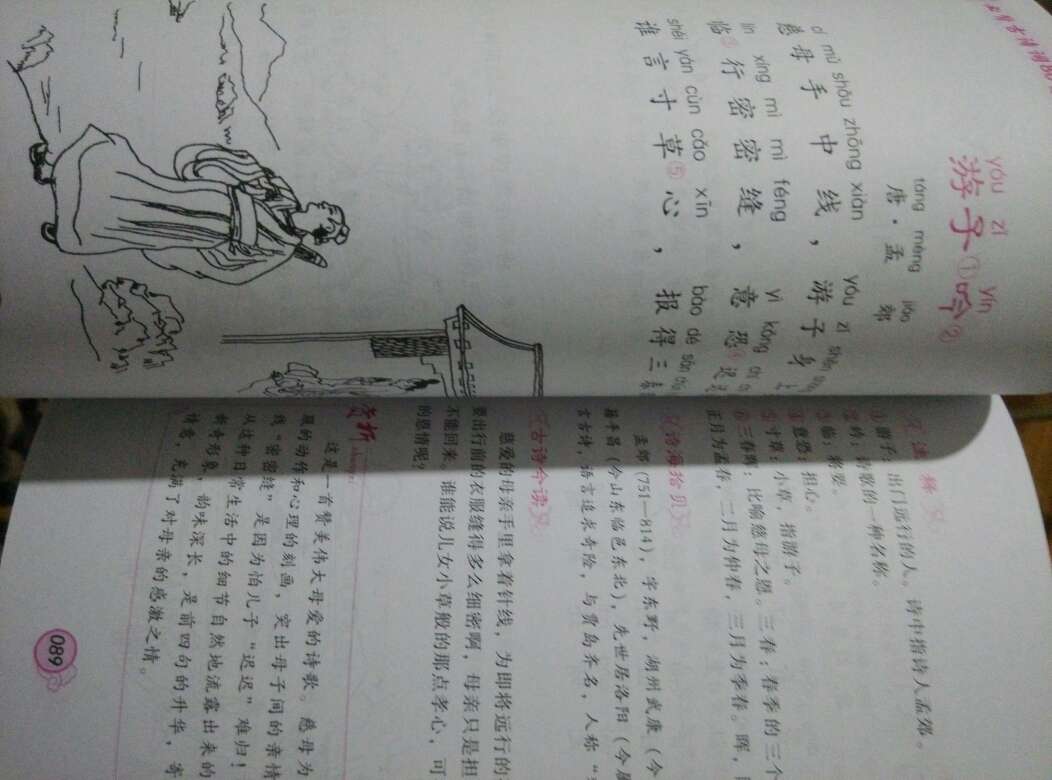 yóu zǐ yín
游子①吟②
táng mèng jiāo
唐·孟 郊
cí mǔ shǒu zhōng xiàn yóu zǐ shēn
慈母手中线，游子身上
lín xíng mì mì féng yì kǒng chí
临③行密密缝，意恐④迟迟
shéi yán cùn cǎo xīn bào dé sān
谁言寸草⑤心，报得三春
注释
①游子：出门远行的人。诗中指诗人孟郊。
②吟：诗歌的一种名称。
③临：将要。
④意恐：担心。
⑤寸草：小草，指游子。
⑥三春晖：比喻慈母之恩。三春：春季的三个
正月为孟春，二月为仲春，三月为季春。晖，
沧海拾贝
孟郊（751—814），字东野，湖州武康（今
籍平昌（今山东临邑东北），先世居洛阳（今属
言古诗，语言追求奇险，与贾岛齐名，人称“
古诗今读
慈爱的母亲手里拿着针线，为即将远行的
要出行前的衣服缝得多么细密啊，母亲只是担
不能回来。谁能说儿女小草般的那点孝心，可
的恩情呢？
赏析
这是一首赞美伟大母爱的诗歌。慈母为
服的动作和心理的刻画，突出母子间的亲情
线“密密缝”是因为怕儿子“迟迟”难归！
从这种日常生活中的细节自然地流露出来的
新奇形象，韵味深长，是前四句的升华，寄
诗意，充满了对母亲的感激之情。
089